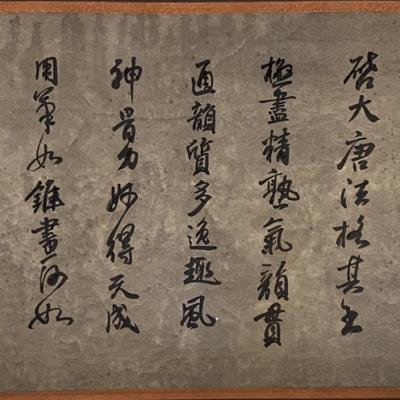 啓大唐法格其
極盡精熟氣韻貫
通韻質多逸趣風
神骨力妙得天成
用筆如錐畫沙如